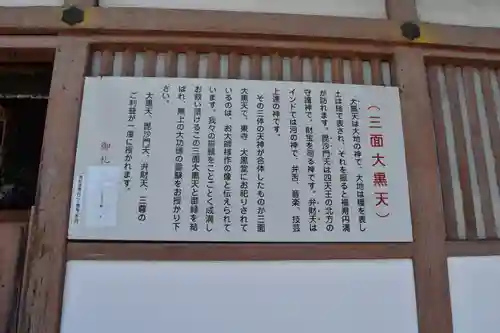 （三面大黒天）
大黒天は大地の神で、大地は種を表し
土は槌で表され、それを振ると福寿円満
が訪れます。毘沙門天は四天王の北方の
守護神で、財宝を司る神です。弁財天は
インドでは河の神で、弁舌、音楽、技芸
上達の神です。
その三体の天神が合体したものが三面
大黒天で、東寺 大黒堂にお祀りされて
いるのは、お大師様作の像と伝えられて
います。我々の祈願をことごとく成満し
お救い頂けるこの三面大黒天と御縁を結
ばれ、無上の大功徳の霊験をお授かり下
さい。
大黒天、毘沙門天、弁財天、三尊の
ご利益が一度に授かれます。
御札